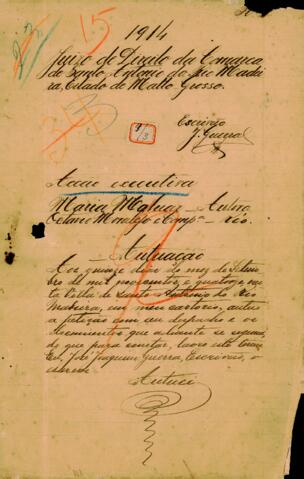 15
1914
Juizo de Direito da Comarca
de Santo Antonio do Rio Madei
ra, Estado de Matto Grosso.
9/3
Escrivão
J. Guerra
Acção executiva
Maria — Autora
Octavio & Comp.ª — Réo.
Autuação
Aos quinze dias do mez de Setem
bro de mil novecentos e quatorze, nes
ta Villa de Santo Antonio do Rio
Madeira, em meu cartorio, autúo
a petição com seu despacho e os
documentos que adiante se seguem,
do que para constar, lavro este termo.
Eu, José Joaquim Guerra, Escrivão, o
escrevi.
Autuei